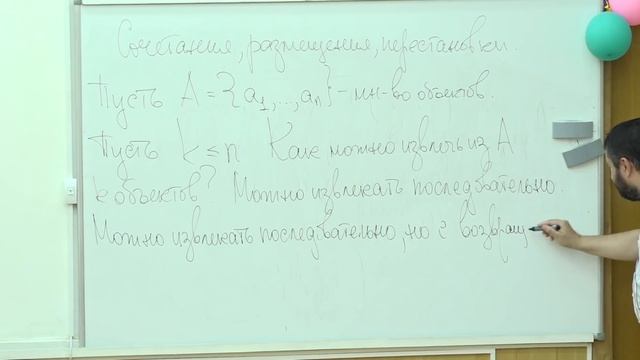 Сочетания, размещения, перестановки.
Пусть A = {a₁,..,aₙ} - мн-во объектов.
Пусть k ≤ n Как можно извлечь из A
k объектов? Можно извлекать последовательно.
Можно извлекать последовательно, но с возвращ